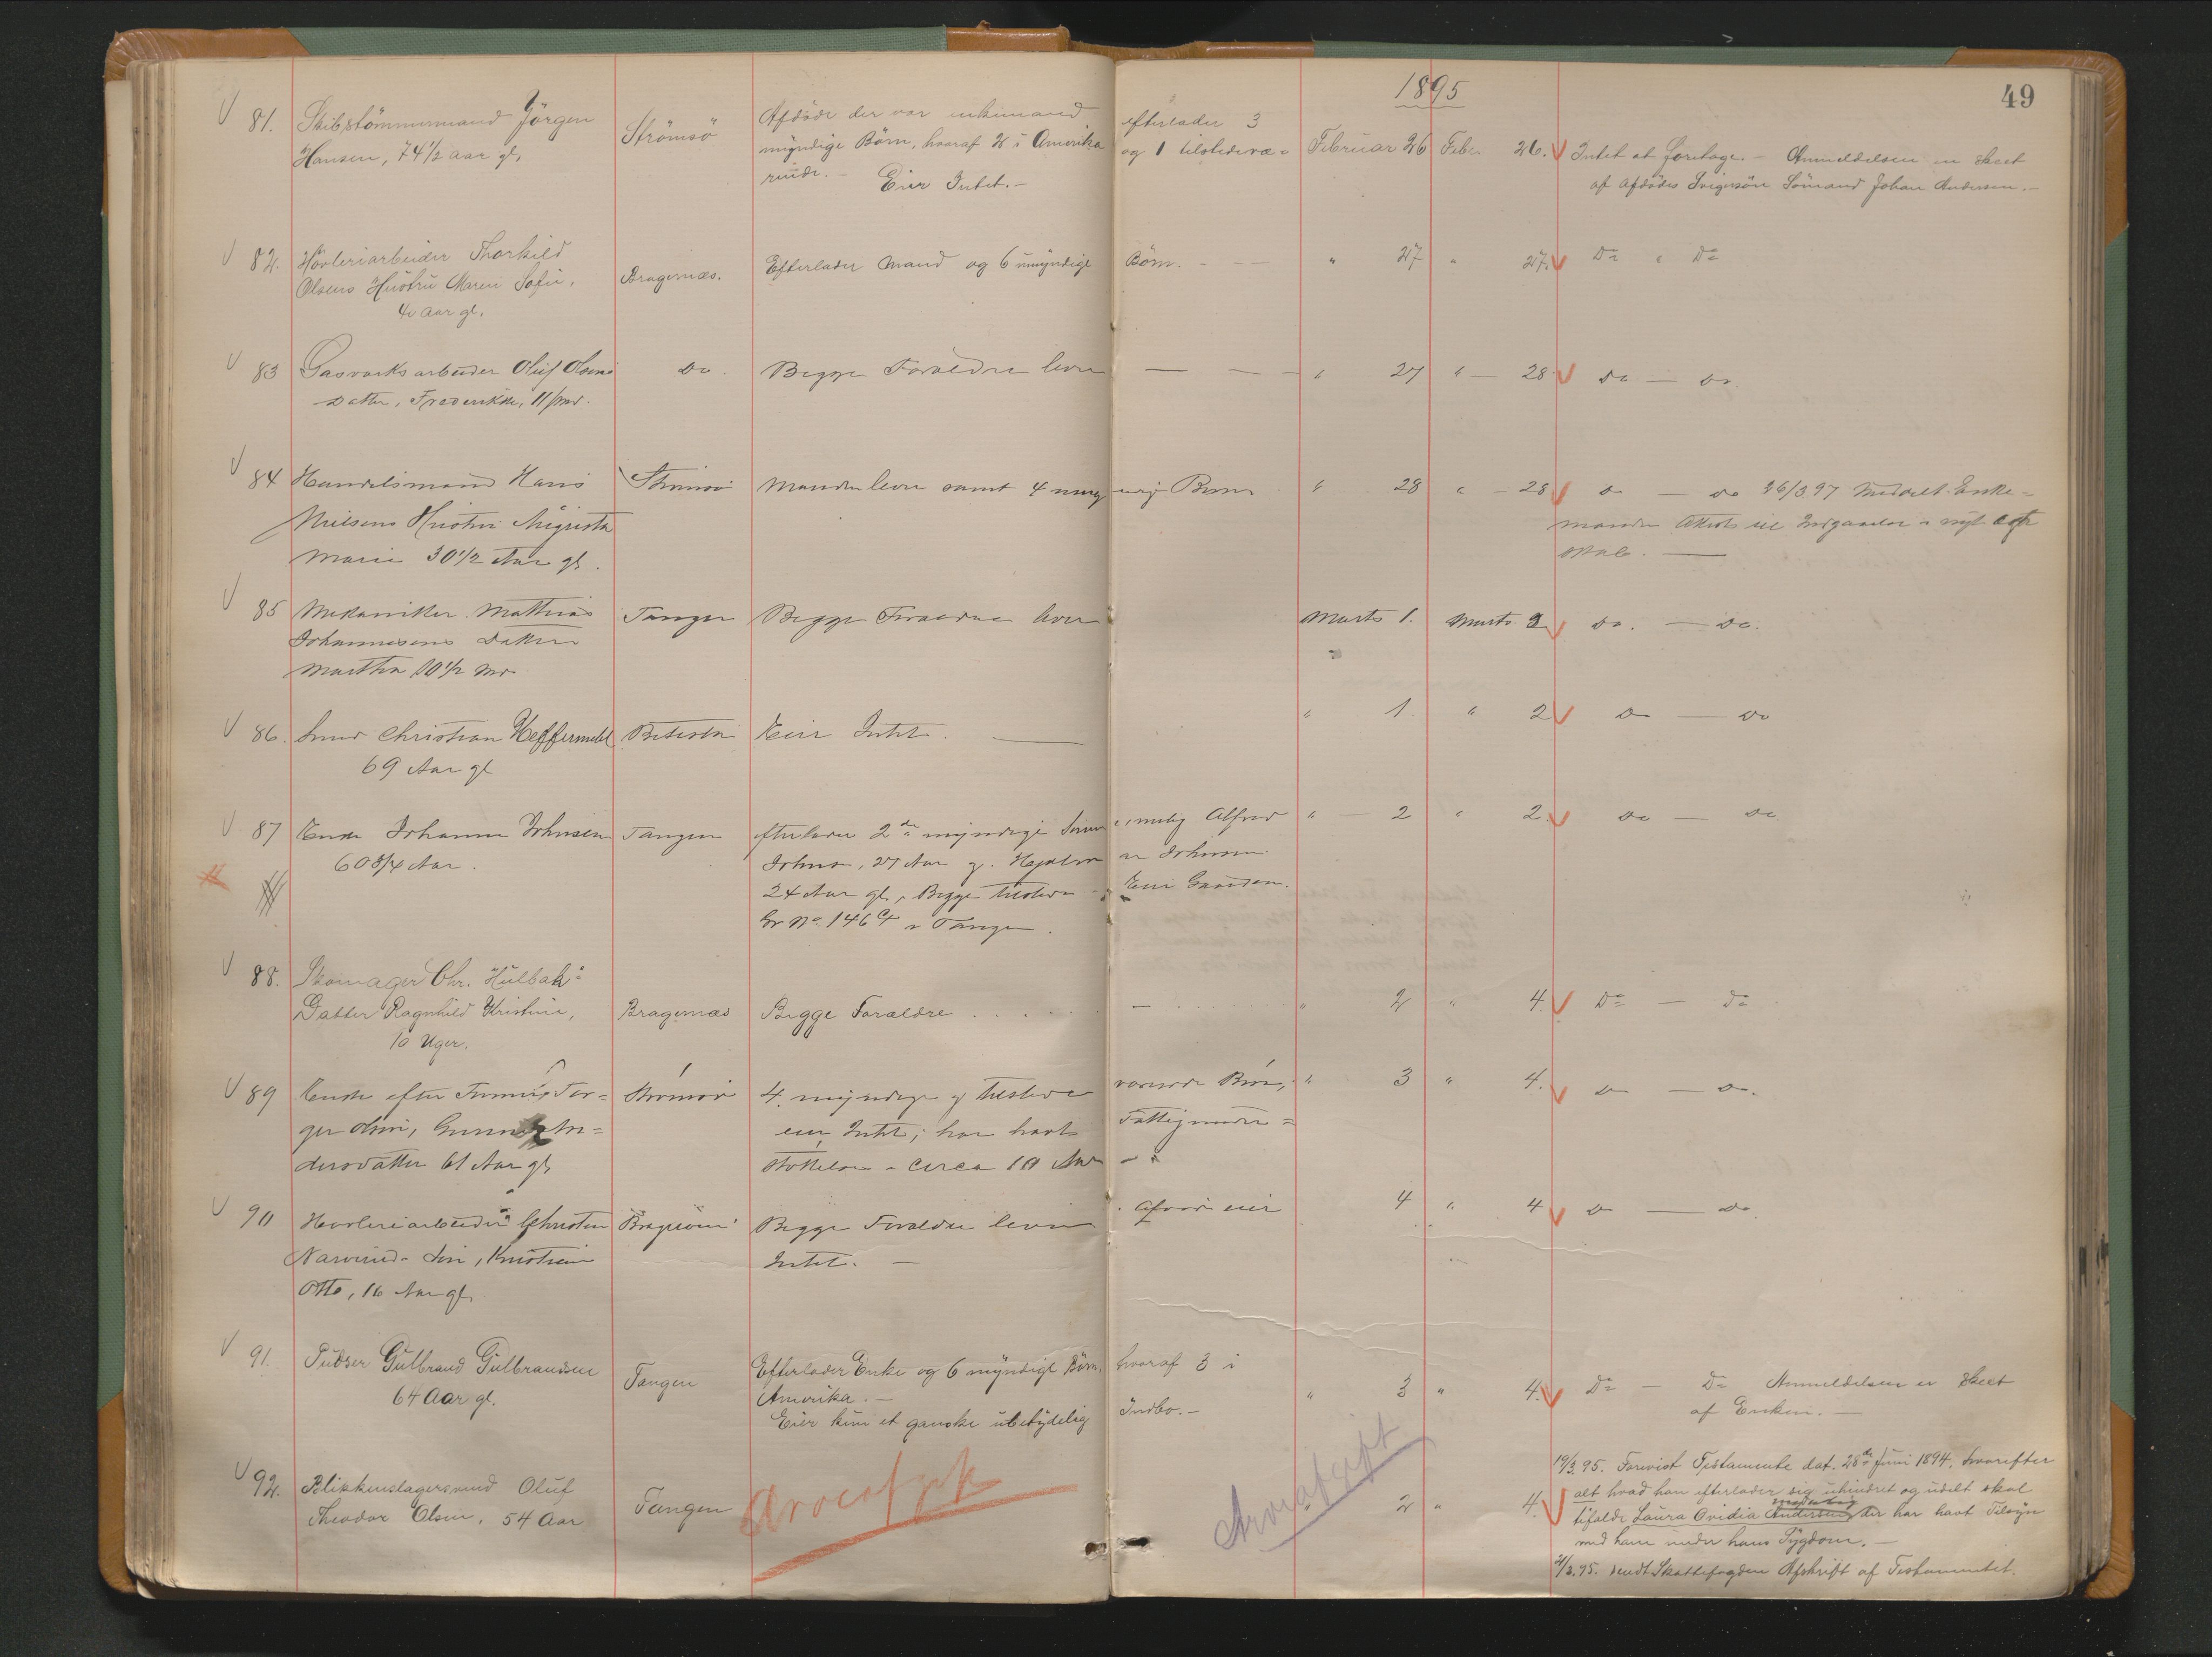 1895
49
81. Skibstömmermand Jörgen
Hansen, 74 1/2 aar gl.
Strömsö
Afdøde der var enkemand efterlader 3
myndige Börn, hvoraf 2 i Amerika og 1 tilstedevæ-
rende. - Eier Intet. -
Februar 26 Febr 26.
Intet at foretage. - Anmeldelsen er skeet
af afdödes Svigersön Sömand Johan Andersen. -
82. Hövleriarbeider Thorkild
Olsens Hustru Maren Sofie,
41 aar gl.
Bragernæs.
Efterlader Mand og 6 umyndige Börn. -
" 27 " 27.
Do " Do
83 Gasværksarbeider Oluf Olsens
Datter, Frederikke, 11 Mdr.
Do.
Begge Forældre lever
" 27 " - 28
Do - Do.
84 Handelsmand Hans
Nielsens Hustru Augusta
Marie 30 1/2 Aar gl.
Strömsö
Manden lever samt 4 umyndige Børn
" 28 " - 28
Do - Do 26/3 97 Meddelt Enke-
manden Attest til Indgaaelse af nyt Ægte
skab. -
85 Mekaniker Mathias
Johannesens Datter
Martha 10 1/2 Mdr
Tangen
Begge Forældre lever
Marts 1. Marts 2
Do. - Do.
86. Smed Christian Heffermehl
69 Aar gl
Eier Intet. -
" 1. " 2
Do - Do
87 Enke Johanne Johnsen
60 3/4 Aar.
Tangen
efterlader 2de myndige Sønner, nemlig Alfred
Johnsen, 27 Aar gl. Hjalmar Johnsen
24 Aar gl., Begge tilstede. Eier Gaarden
Gr No. 146 a Tangen.
" - 2 " 2.
Do - Do
88. Skomager Chr. Hulbak's
Datter Ragnhild Kristine,
10 Uger.
Bragernæs
Begge Forældre . . . . .
" 2 " 4.
Do - Do
89 Enke efter Tor-
ger Olsen, Gunnild An-
dersdatter 61 Aar gl.
Strömsö
4 myndige og tilstedeværende Børn,
eier Intet; har havt Fattigunder-
støttelse i circa 10 Aar -
" 3 " 4.
Do - Do.
90 Hövleriarbeider Christen
Narverud's Søn, Kristian
Otto, 16 Aar gl.
Bragernæs
Begge Forældre lever. Afdøde eier
Intet. -
4 " 4
Do - Do.
91. Pudser Gulbrand Gulbrandsen
64 Aar gl.
Tangen
Efterlader Enke og 6 myndige Börn, hvoraf 3 i
Amerika. -
Eier kun et ganske ubetydelig Indbo. -
" 3 " 4.
Do - Do Anmeldelsen er skeet
af Enken. -
92. Blikkenslagersvend Oluf
Theodor Olsen, 54 Aar
Tangen
Arveafgift
Arveafgift
" 2 " 4.
19/3.95. Forevist Testamente dat. 28de Juni 1894, hvorefter
alt hvad han efterlader sig uhindret og udelt skal
tilfalde Laura Ovidia Andersen der har havt Tilsyn
med ham under hans Sygdom. -
21/3.95. sendt Skattefogden Afskrift af Testamentet.